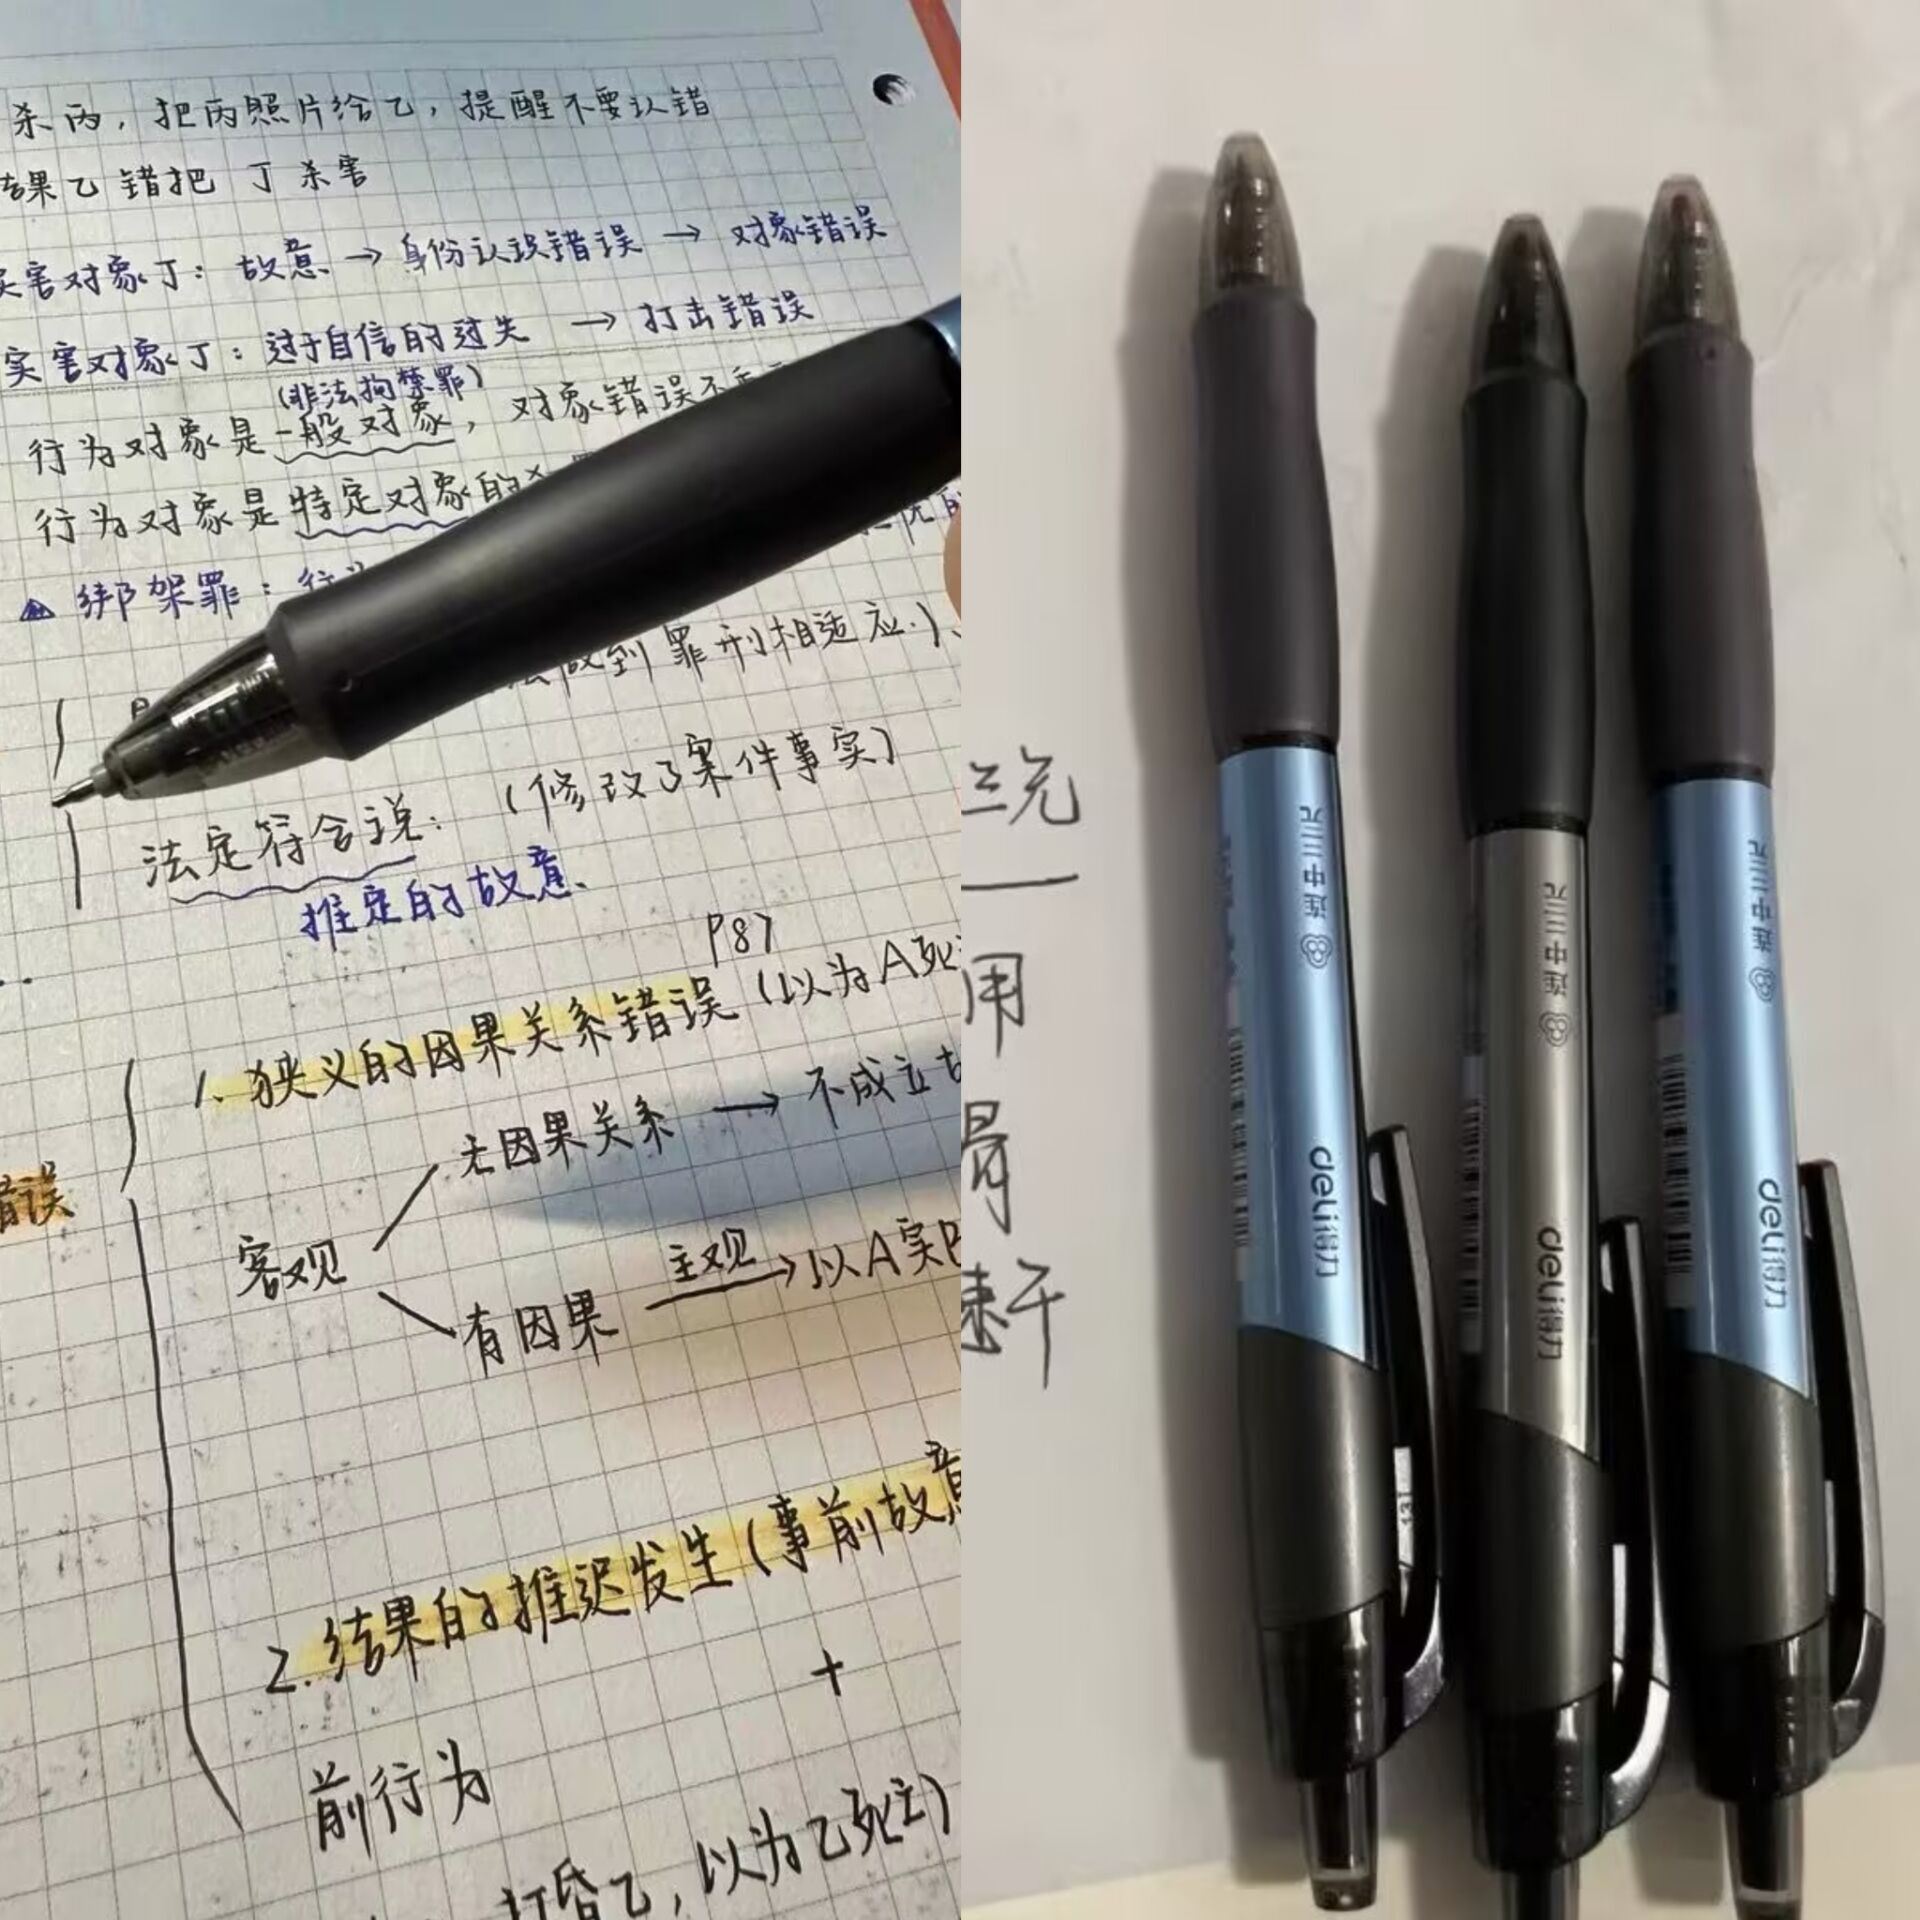 杀丙，把丙照片给乙，提醒不要认错
结果乙错把丁杀害
实害对象丁：故意→身份认识错误→对象错误
实害对象丁：过于自信的过失→打击错误
(非法拘禁罪)
行为对象是一般对象，对象错误不
行为对象是特定对象的
▲绑架罪：行为
做到罪刑相适应.)
法定符合说：(修改了案件事实)
推定的故意、
P87
1.狭义的因果关系错误(以为A死
无因果关系→不成立故
错误
客观
有因果 主观→以A实
2.结果的推迟发生(事前故意
+
前行为
打昏乙，以为乙死亡)
一
用
连中三元
deli得力
连中三元
deli得力
连中三元
deli得力
131